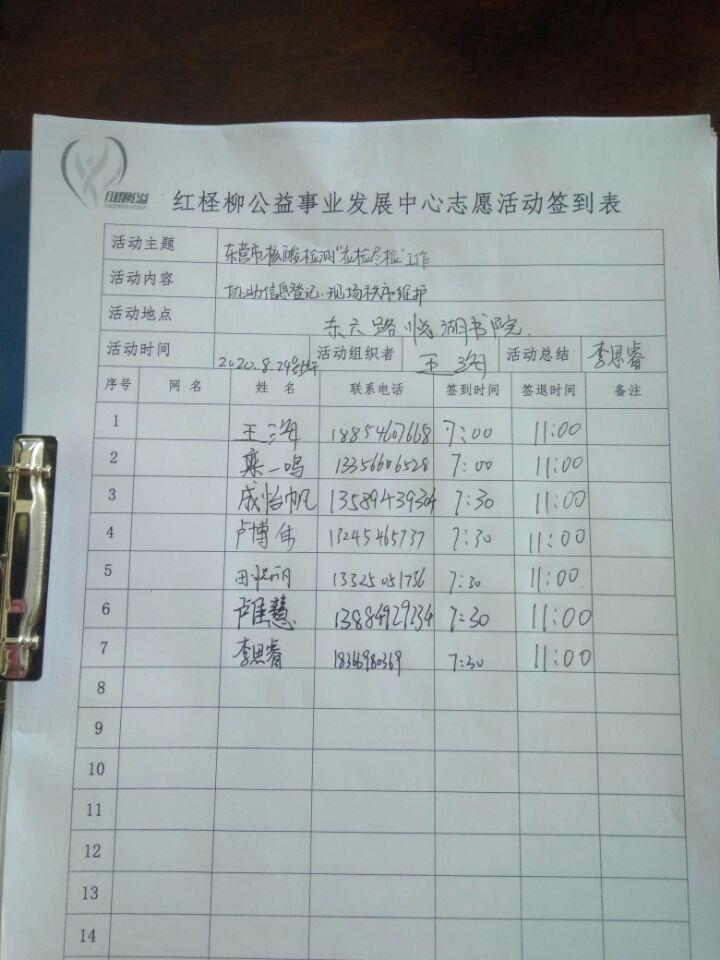 红柽柳公益
红柽柳公益事业发展中心志愿活动签到表
活动主题 东营市核酸检测"应检尽检"工作
活动内容 协助信息登记、现场秩序维护
活动地点 东六路悦湖书院.
活动时间 2020.8.29 活动组织者 王海 活动总结 李思睿
序号 网名 姓名 联系电话 签到时间 签退时间 备注
1 王海 18854607668 7:00 11:00
2 栾一鸣 13356606528 7:00 11:00
3 成怡帆 13589439304 7:30 11:00
4 卢博伟 13245465737 7:30 11:00
5 田 13325051736 7:30 11:00
6 卢佳慧 13884929234 7:30 11:00
7 李思睿 18366980369 7:30 11:00
8
9
10
11
12
13
14